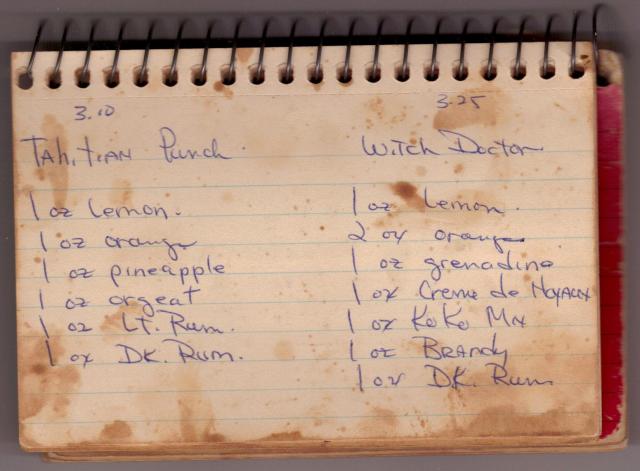 3.10
Tahitian Punch
1 oz Lemon.
1 oz orange
1 oz pineapple
1 oz orgeat
1 oz Lt. Rum.
1 oz DK. Rum.
3.25
Witch Doctor
1 oz Lemon
2 oz orange
1 oz grenadine
1 oz Creme de Noyaux
1 oz KoKo Mix
1 oz Brandy
1 oz DK. Rum